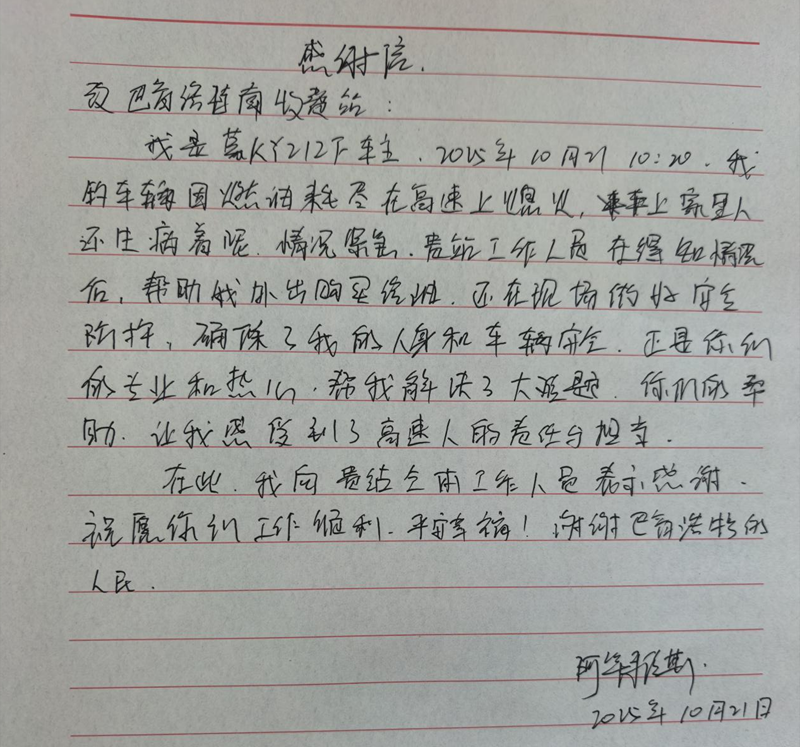 感谢信.
致巴彦浩特南收费站:
我是蒙KY212F车主.2025年10月21 10:20.我
的车辆因燃油耗尽在高速上熄火,车上家里人
还生病着呢.情况紧急.贵站工作人员在得知情况
后,帮助我外出购买给油.还在现场做好安全
防护,确保了我的人身和车辆安全.正是你们
的专业和热心.帮我解决了大难题.你们的帮
助.让我感受到了高速人的责任与担当.
在此.我向贵站全体工作人员表示感谢.
祝愿你们工作顺利.平安幸福!谢谢巴彦浩特的
人民.
阿斯
2025年10月21日